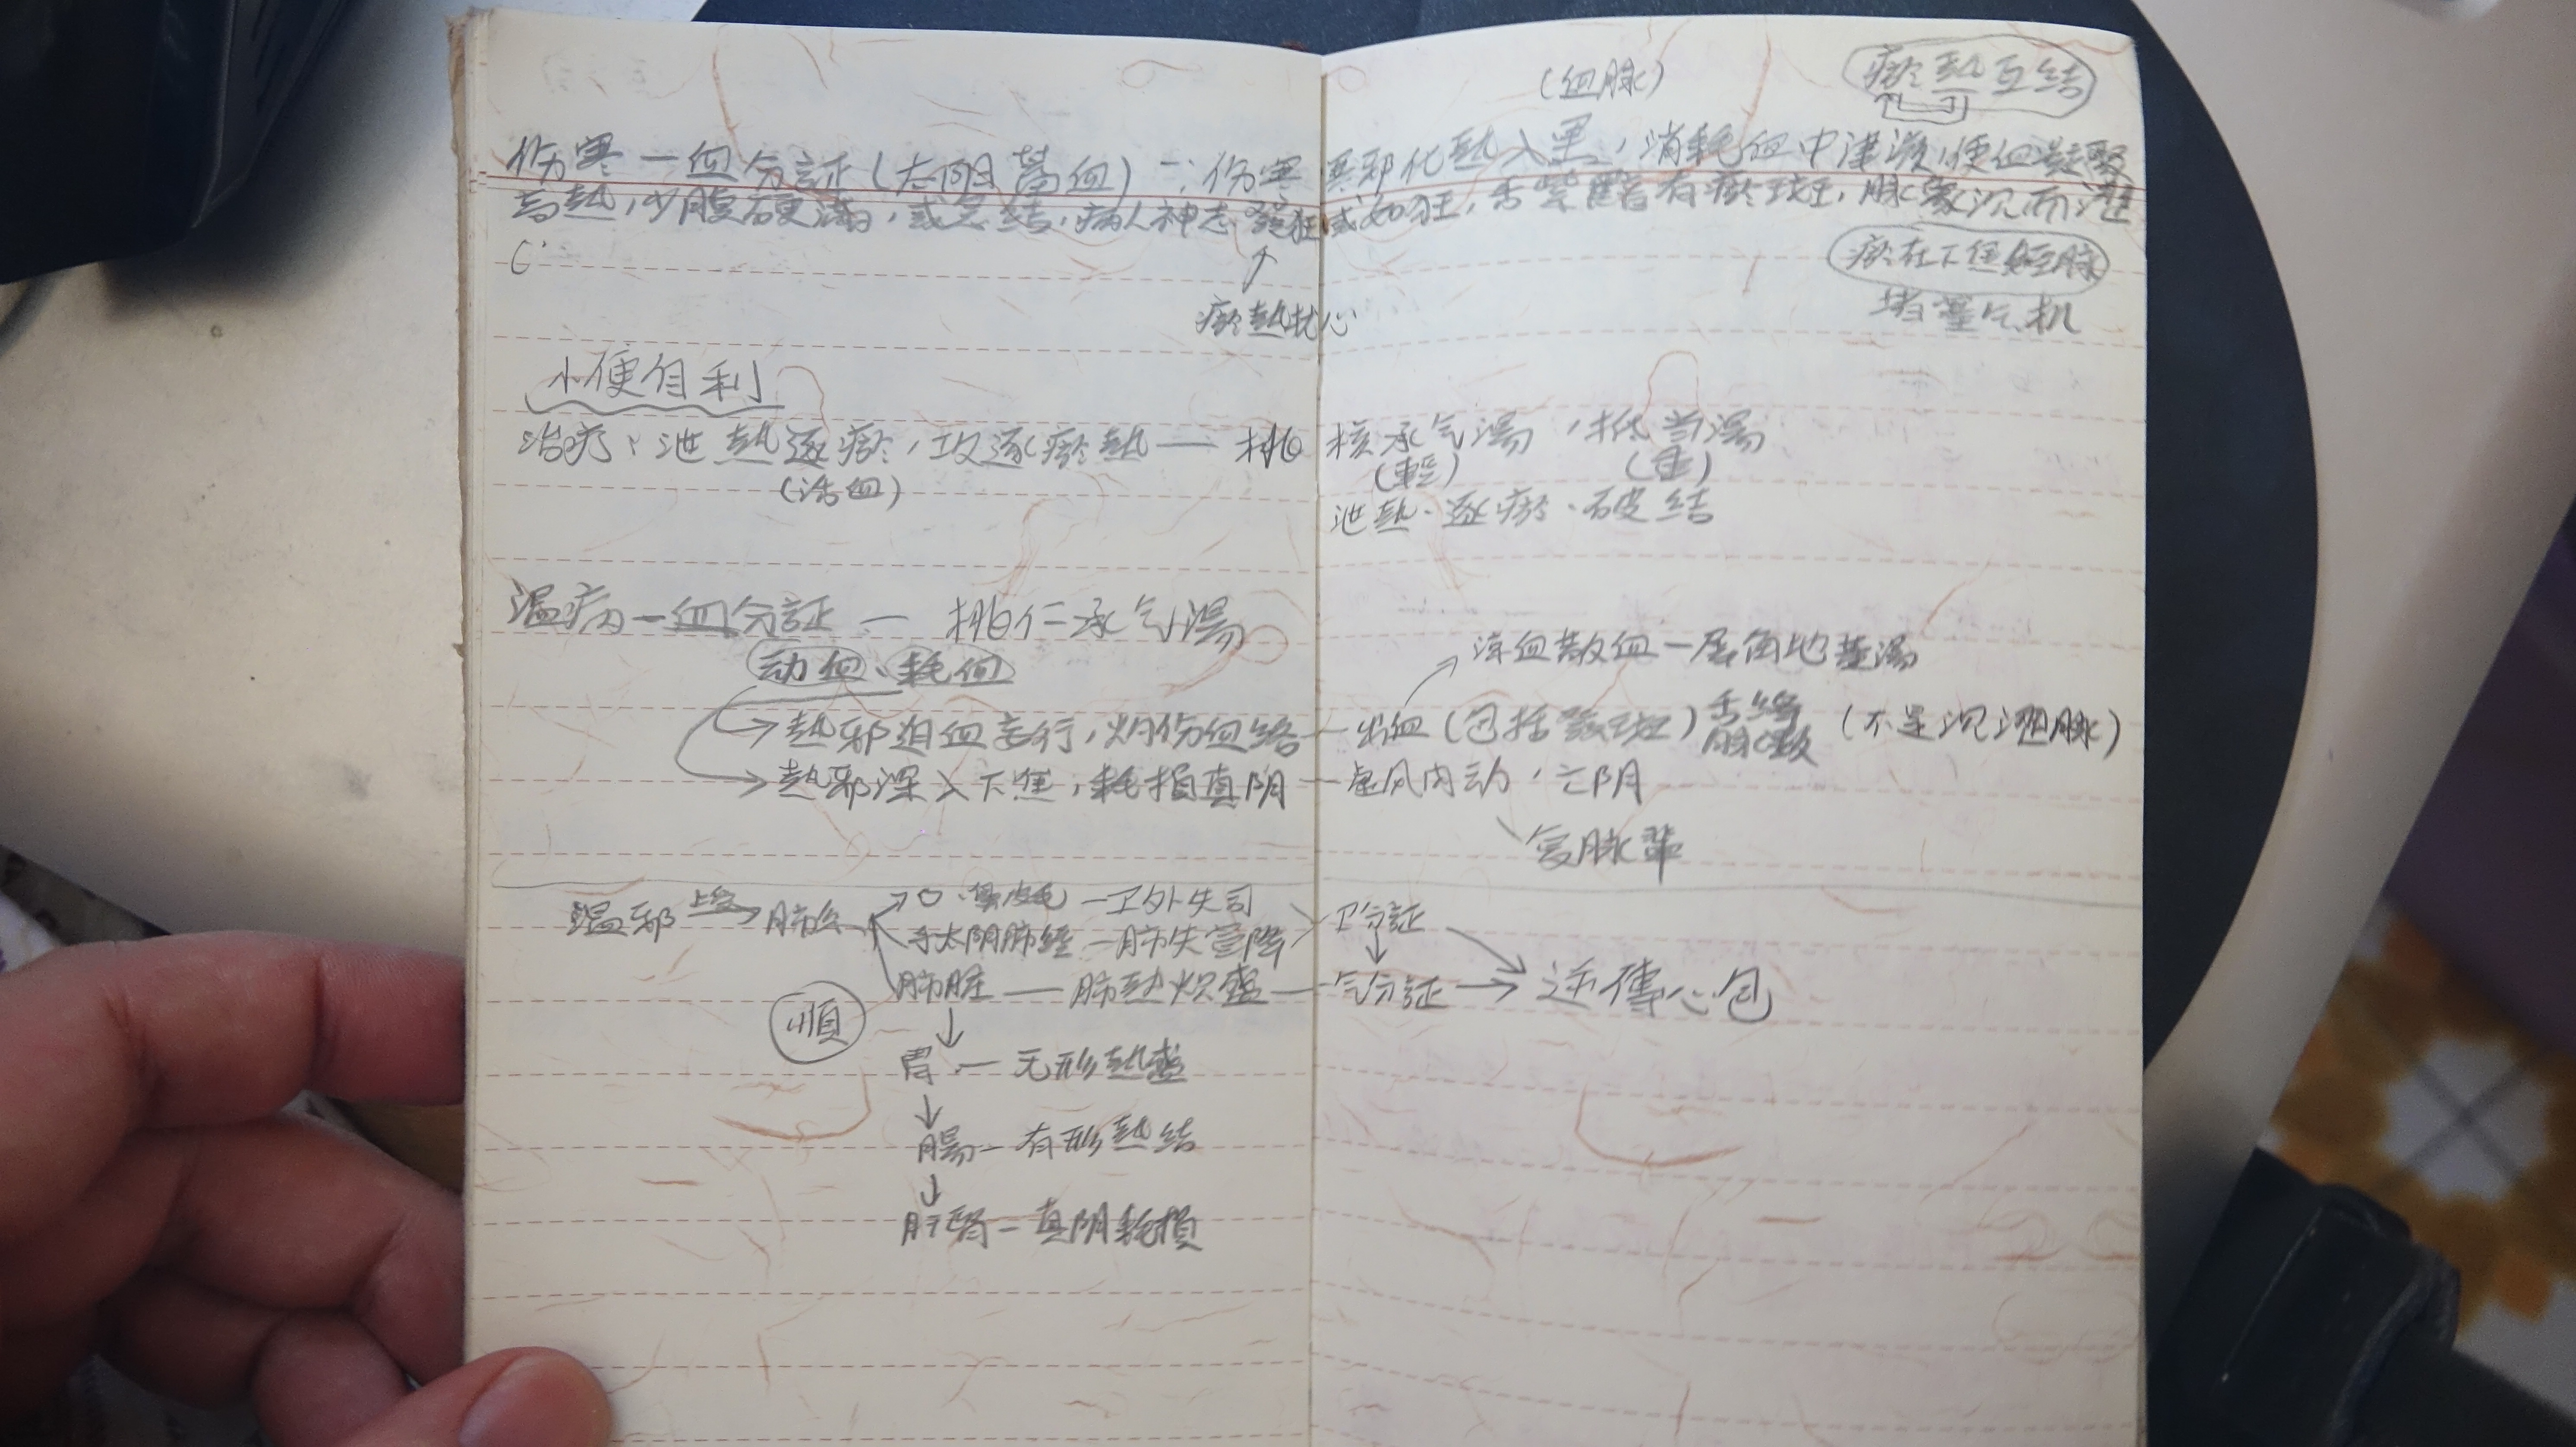 (血脉)
瘀热互结
伤寒一血分証(太阳蓄血)∵伤寒 寒邪化热入里,消耗血中津液,使血凝聚
高热,少腹硬满,或急结,病人神志發狂或如狂,舌紫暗有瘀斑,脉象沉而澀
瘀在下焦
堵塞气机
瘀热扰心
小便自利
治疗:泄热逐瘀,攻逐瘀热——桃核承气湯,抵当湯
(活血)
(輕) (重)
泄热、逐瘀、破结
温病一血分証— 桃仁承气湯
动血、耗血
凉血散血一犀角地黄湯
热邪迫血妄行,灼伤血络—出血(包括發斑)舌絳 脉數 (不是沉澀脉)
热邪深入下焦,耗損真阴—虚风内动,亡阴
复脉輩
温邪 上受→肺
口、鼻、皮毛 —卫外失司
手太阴肺經 —肺失宣降 卫分証
肺臟 —— 肺热炽盛 —气分証→逆傳心包
順
↓
胃 — 无形热盛
↓
腸— 有形热结
↓
肝腎—真阴耗損